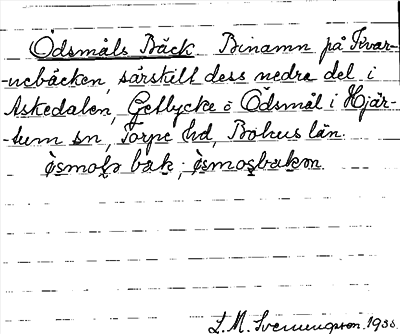 Ödsmåls Bäck Binamn på Kvar-
-nebäcken, särskilt dess nedre del i
Askedalen, Getlycke o Ödsmål i Hjär-
-tum sn, Torpe hd, Bohus län.
bäk,
L. M. Svenungsson.